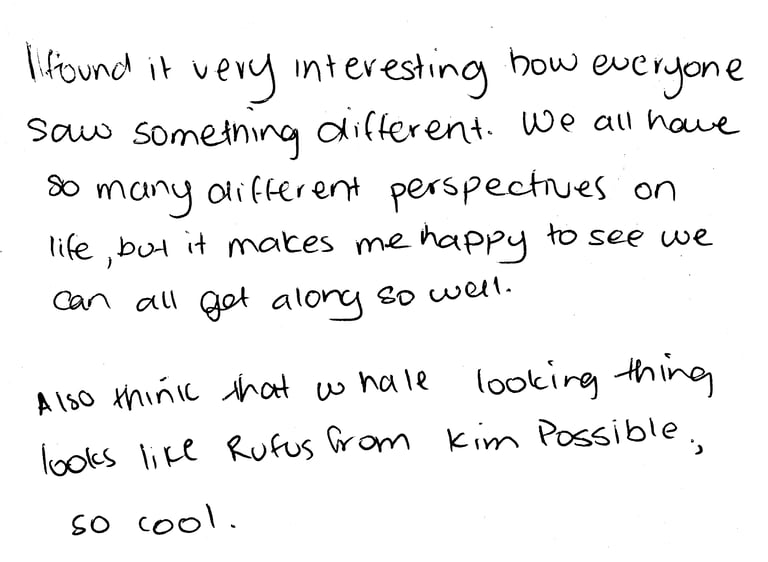 I found it very interesting how everyone
saw something different. We all have
so many different perspectives on
life, but it makes me happy to see we
can all get along so well.
Also think that whale looking thing
looks like Rufus from Kim Possible.,
so cool.